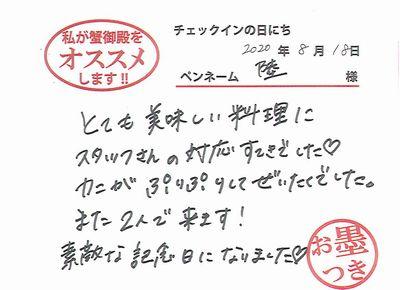 私が蟹御殿を
オススメ
します!!
チェックインの日にち
2020年8月18日
ペンネーム 陸 様
とても美味しい料理に
スタッフさんの対応すてきでした♡
カニがぷりぷりしてぜいたくでした。
また2人で来ます!
素敵な記念日になりました♡
お墨
つき